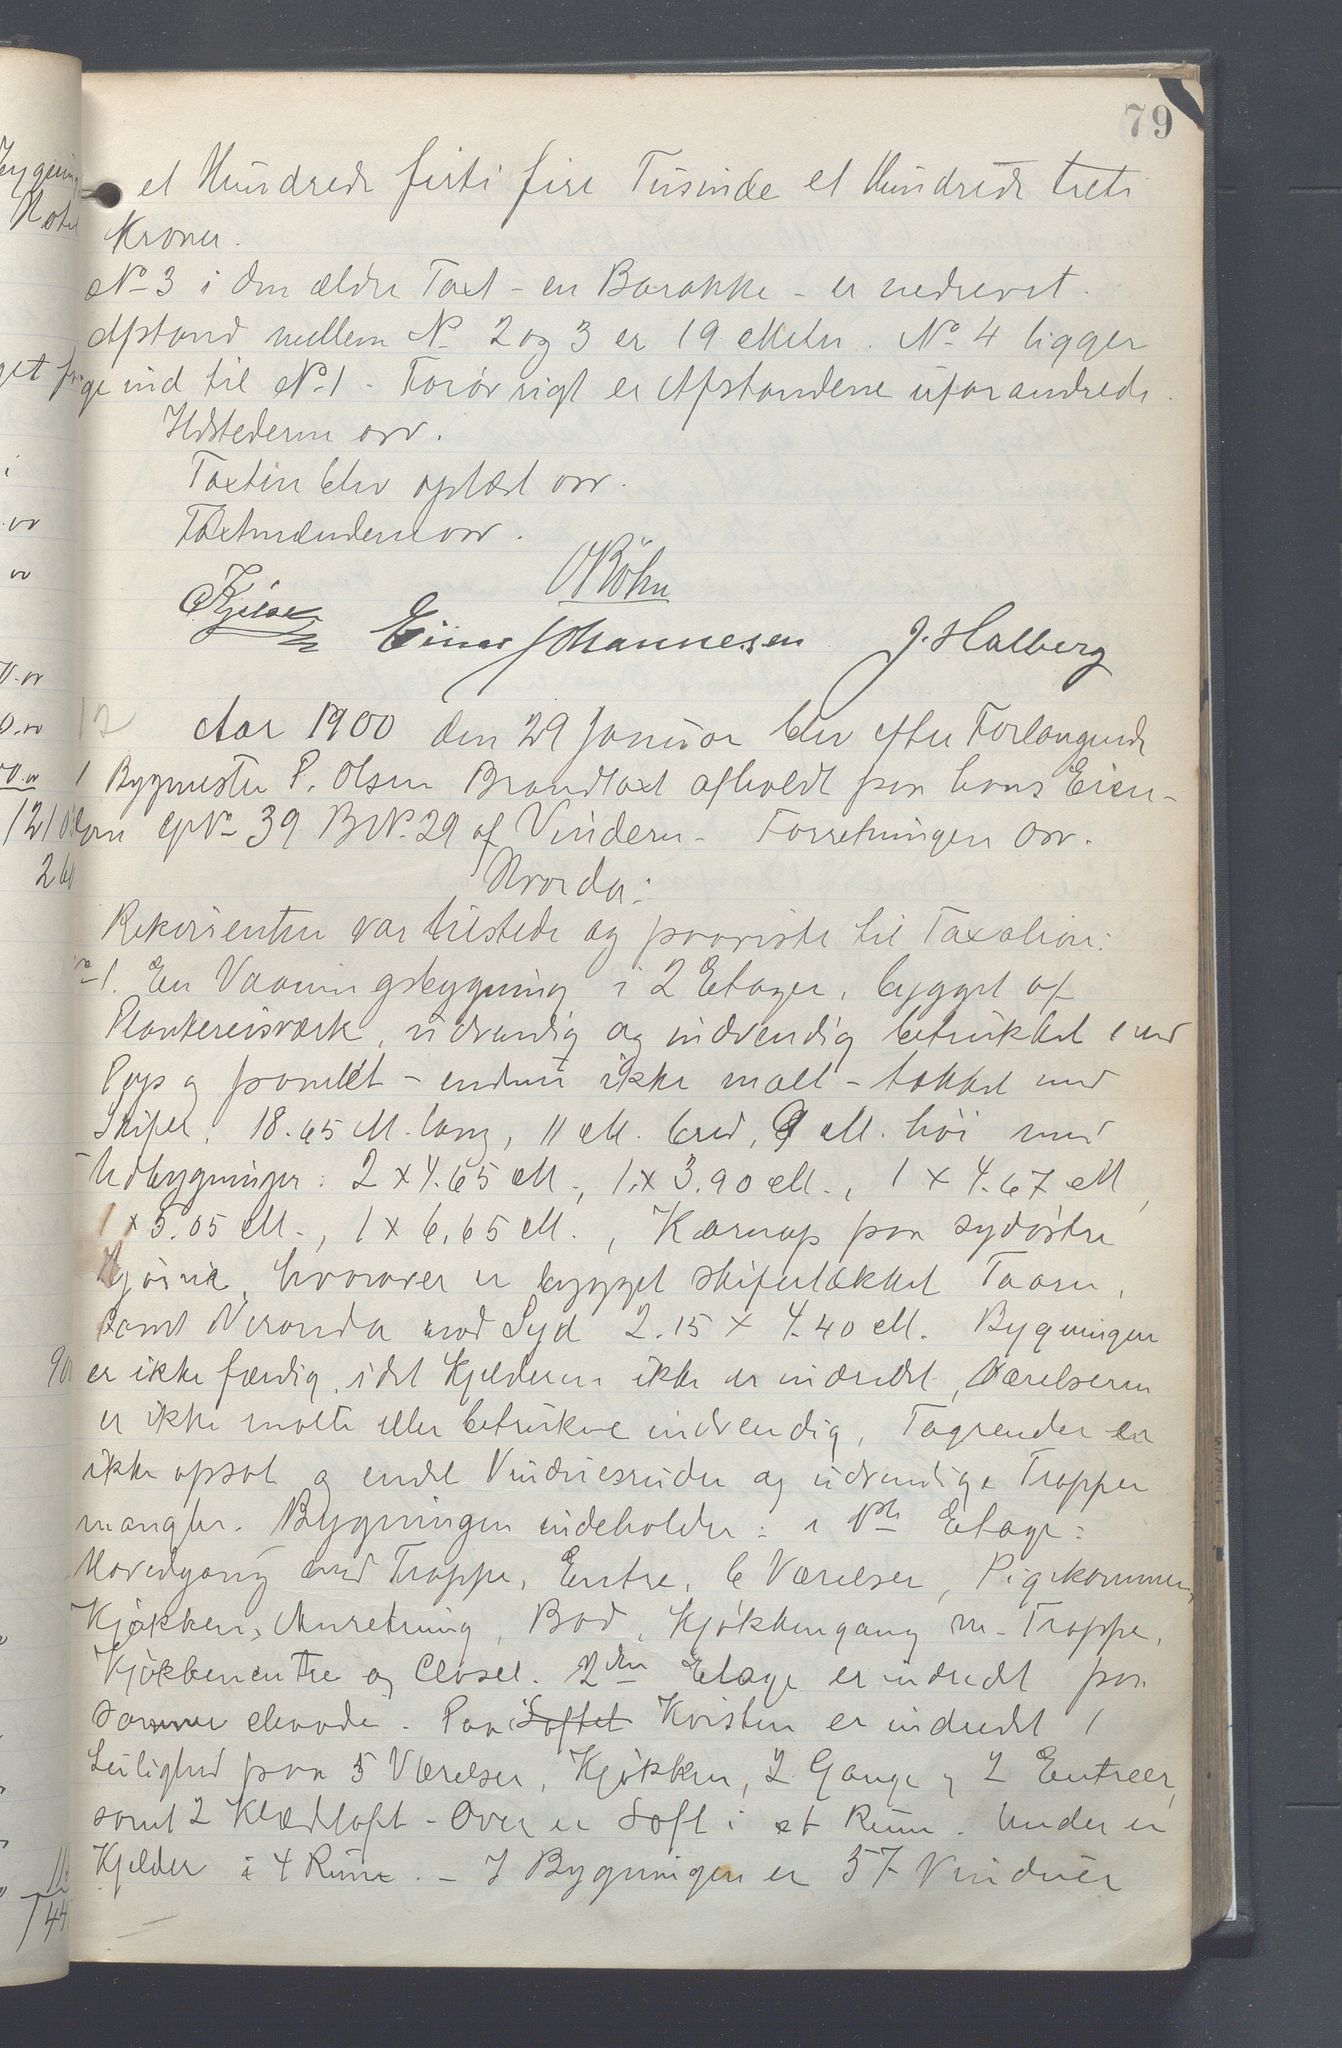 79
et Hundrede firti fire Tusinde et Hundrede treti
Kroner.
No 3 i den ældre Taxt - en Barakke - er nedrevet.
Afstand mellem No 2 og 3 er 19 Meter. No 4 ligger
ind til No 1 - Forøvrigt er Afstandene uforandrede.
Ildstederne osv.
Taxten blev oplæst osv.
Taxtmændene osv.
OBöhn
Einar Johannesen J. Halberg
12 Aar 1900 den 29 Januar blev efter Forlangende
1 Bygmester P. Olsen Brandtaxt afholdt paa hans Eien-
dom GNo 39 BNo 29 af Vinderen - Forretningen osv.
Hvorda:
Rekvirenten var tilstede og paaviste til Taxation:
No 1. En Vaaningsbygning i 2 Etager, bygget af
Plankereisværk, udvendig og indvendig betrukket med
Pap og panelet - endnu ikke malt - tækket med
Skifer, 18.65 M. lang, 11 M. bred, 9 M. høi med
Udbygninger: 2 x 4.65 M., 1 x 3.90 M., 1 x 4.67 M,
1 x 5.05 M., 1 x 6.65 M., Karnap paa sydøstre
Hjørne, hvorover er bygget skifertækket Taarn,
samt Veranda mod Syd 2.15 x 4.40 M. Bygningen
er ikke færdig, idet Kjelderen ikke er indredet, Værelserne
er ikke malte eller betrukne indvendig, Tagrender er
ikke opsat og endel Vinduesruder og udvendige Trapper
mangler. Bygningen indeholder: i 1ste Etage:
Hovedgang med Trappe, Entre, 6 Værelser, Pigekammer,
Kjøkken, Anretning, Bod, Kjøkkengang m. Trappe,
Kjøkkenentre og Closet. 2den Etage er indredet paa
samme Maade. Paa Loftet Kvisten er indredet 1
Leilighed paa 5 Værelser, Kjøkken, 2 Gange og 2 Entreer,
samt 2 Klædloft - Over er Loft i et Rum. Under er
Kjelder i 4 Rum. - I Bygningen er 57 Vinduer